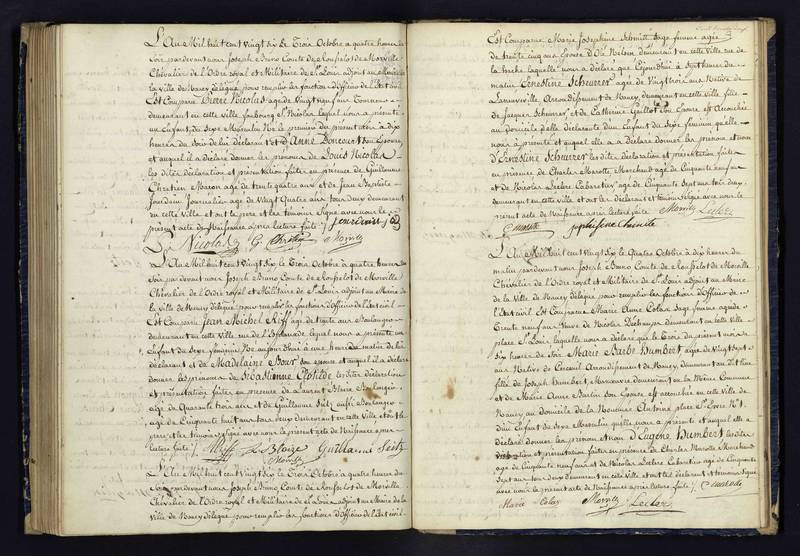 L'An Mil huit cent Vingt Six Le Trois Octobre à quatre heures du
Soir pardevant nous Joseph Bruno Comte de Rouffelot de Morville
Chevalier de l'Ordre royal et Militaire de St Louis adjoint au Maire de
la Ville de Nancy délégué pour remplir les fonctions d'Officier de l'Etat civil
Est Comparu Pierre Nicolas agé de Vingt neuf ans Tonnelier
demeurant en cette Ville faubourg St Nicolas lequel nous a présenté
un Enfant du Sexe Masculin Né le premier du présent mois à dix
heures du Soir de lui déclarant et d'Anne Doncourt son Epouse,
et auquel il a déclaré donner les prénoms de Louis Nicolas
les dites déclaration et présentation faites en présence de Guillaume
Chretien Maçon agé de trente quatre ans et de Jean Baptiste
Journalier agé de Vingt Quatre ans tous deux demeurant
en cette Ville et ont le père et les témoins Signé avec nous le
présent acte de Naissance après lecture faite
Nicolas G. Chretien Morville
L'An Mil huit cent Vingt Six Le Trois Octobre à quatre heures du
Soir pardevant nous Joseph Bruno Comte de Rouffelot de Morville
Chevalier de l'Ordre royal et Militaire de St Louis adjoint au Maire de
la Ville de Nancy délégué pour remplir les fonctions d'Officier de l'Etat civil
Est Comparu Jean Michel Riff agé de trente ans Boulanger
demeurant en cette Ville rue de l'Esplanade lequel nous a présenté un
Enfant du Sexe féminin Né aujourd'hui à une heure du matin de lui
déclarant et de Madelaine Bour son épouse et auquel il a déclaré
donner les prénoms de Sébastienne Clotilde les dites déclaration
et présentation faites en présence de Laurent Blaise Boulanger
agé de Quarante trois ans et de Guillaume Seitz aussi Boulanger
agé de Cinquante huit ans tous deux demeurant en cette Ville et ont le
père et les témoins Signé avec nous le présent acte de Naissance après
lecture faite Riff L Blaize Guillaume Seitz
Morville
L'An Mil huit cent Vingt Six Le Trois Octobre à quatre heures du
Soir pardevant nous Joseph Bruno Comte de Rouffelot de Morville
Chevalier de l'Ordre royal et Militaire de St Louis adjoint au Maire de la
Ville de Nancy délégué pour remplir les fonctions d'Officier de l'Etat civil
Est Comparue Marie Josephine Schmitt Sage femme agée
de trente cinq ans Epouse d' demeurant en cette Ville rue de
la laquelle nous a déclaré que aujourd'hui à Sept heures du
matin Ernestine Scheurrer agée de Vingt trois ans Native de
Laneuveville, Arrondissement de Nancy, demeurant en cette Ville fille
de Jacques Scheurrer et de Catherine Guillot Son Epouse est accouchée
au domicile de la déclarante d'un Enfant du Sexe féminin qu'elle
nous a présenté et auquel elle a déclaré donner les prénom et nom
d'Ernestine Scheurrer les dites déclaration et présentation faites
en présence de Charles Marotte, Marchand agé de Cinquante neuf ans
et de Nicolas Leclerc Cabaretier agé de Cinquante Sept ans tous deux
demeurant en cette Ville et ont les déclarante et témoins Signé avec nous le
présent acte de Naissance après lecture faite Morville Leclerc
C Marotte Josephine Schmitt
L'An Mil huit cent Vingt Six Le Quatre Octobre à dix heures du
matin pardevant nous Joseph Bruno Comte de Rouffelot de Morville
Chevalier de l'Ordre royal et Militaire de St Louis adjoint au Maire
de la Ville de Nancy délégué pour remplir les fonctions d'Officier de
l'Etat civil Est Comparue Marie Anne Colas Sage femme agée de
trente neuf ans Veuve de Nicolas demeurant en cette Ville
place St Louis, laquelle nous a déclaré que le Trois du présent mois à
Six heures du Soir Marie Barbe Humbert agée de Vingt Sept
ans Native de Arrondissement de Nancy, demeurant au dit lieu
fille de Joseph Humbert, Manœuvre demeurant en la Même Commune
et de Marie Anne Barbin Son Epouse est accouchée en cette Ville de
Nancy au domicile de la Nommée Antoine place St Epvre No 1.
d'un Enfant du Sexe Masculin qu'elle nous a présenté et auquel elle a
déclaré donner les prénom et nom d'Eugène Humbert les dites
déclaration et présentation faites en présence de Charles Marotte Marchand
agé de Cinquante neuf ans et de Nicolas Leclerc Cabaretier agé de Cinquante
Sept ans tous deux demeurant en cette Ville et ont les déclarante et témoins Signé
avec nous le présent acte de Naissance après lecture faite C Marotte
Marie Colas Morville Leclerc